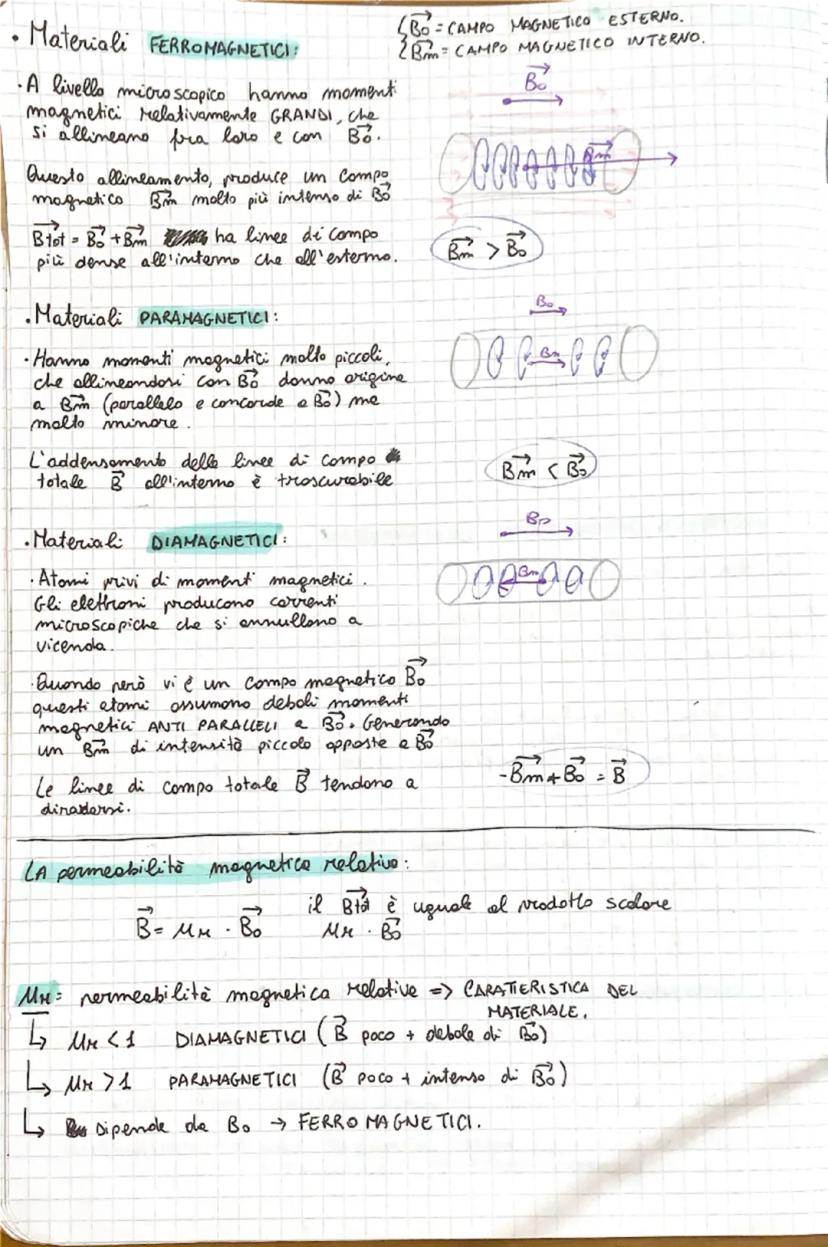 • Materiali FERROMAGNETICI:
B₀ = CAMPO MAGNETICO ESTERNO.
Bm = CAMPO MAGNETICO INTERNO.
• A livello microscopico hanno momenti
magnetici relativamente GRANDI, che
si allineano fra loro e con B₀.
B₀
Bm
Questo allineamento, produce un campo
magnetico Bm molto più intenso di B₀
Btot = B₀ + Bm ha linee di campo
più dense all'interno che all'esterno.
Bm > B₀
• Materiali PARAMAGNETICI:
B₀
Bm
• Hanno momenti magnetici molto piccoli,
che allineandosi con B₀ danno origine
a Bm (parallelo e concorde a B₀) ma
molto minore.
L'addensamento delle linee di campo
totale B all'interno è trascurabile
Bm < B₀
• Materiali DIAMAGNETICI:
B₀
Bm
• Atomi privi di momenti magnetici.
Gli elettroni producono correnti
microscopiche che si annullano a
vicenda.
• Quando però vi è un campo magnetico B₀
questi atomi assumono deboli momenti
magnetici ANTI PARALLELI a B₀. Generando
un Bm di intensità piccola opposta a B₀
Le linee di campo totale B tendono a
diradarsi.
-Bm + B₀ = B
LA permeabilità magnetica relativa:
B = μr · B₀
il Btot è uguale al prodotto scalare
μr · B₀
μr = permeabilità magnetica relativa => CARATTERISTICA DEL
MATERIALE.
↳ μr < 1 DIAMAGNETICI (B poco + debole di B₀)
↳ μr > 1 PARAMAGNETICI (B poco + intenso di B₀)
↳ Dipende da B₀ → FERROMAGNETICI.